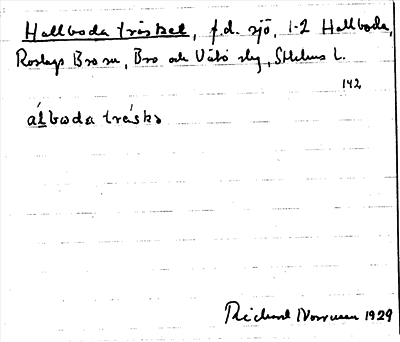 Hallboda träsket, f.d. sjö, 1-2 Hallboda,
Roslags Bro sn, Bro och Vätö slg, Sthlms l.
142
álboda trásks
Richard Norrman 1929